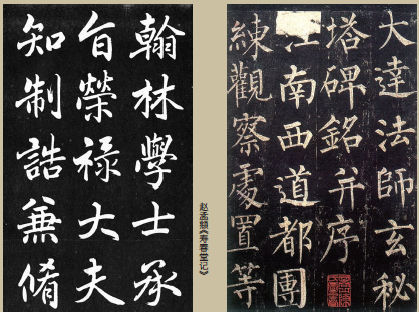 翰林學士承
旨榮禄大夫
知制誥兼脩
赵孟頫《寿春堂记》
大達法師玄秘
塔碑銘并序
江南西道都團
練觀察處置等